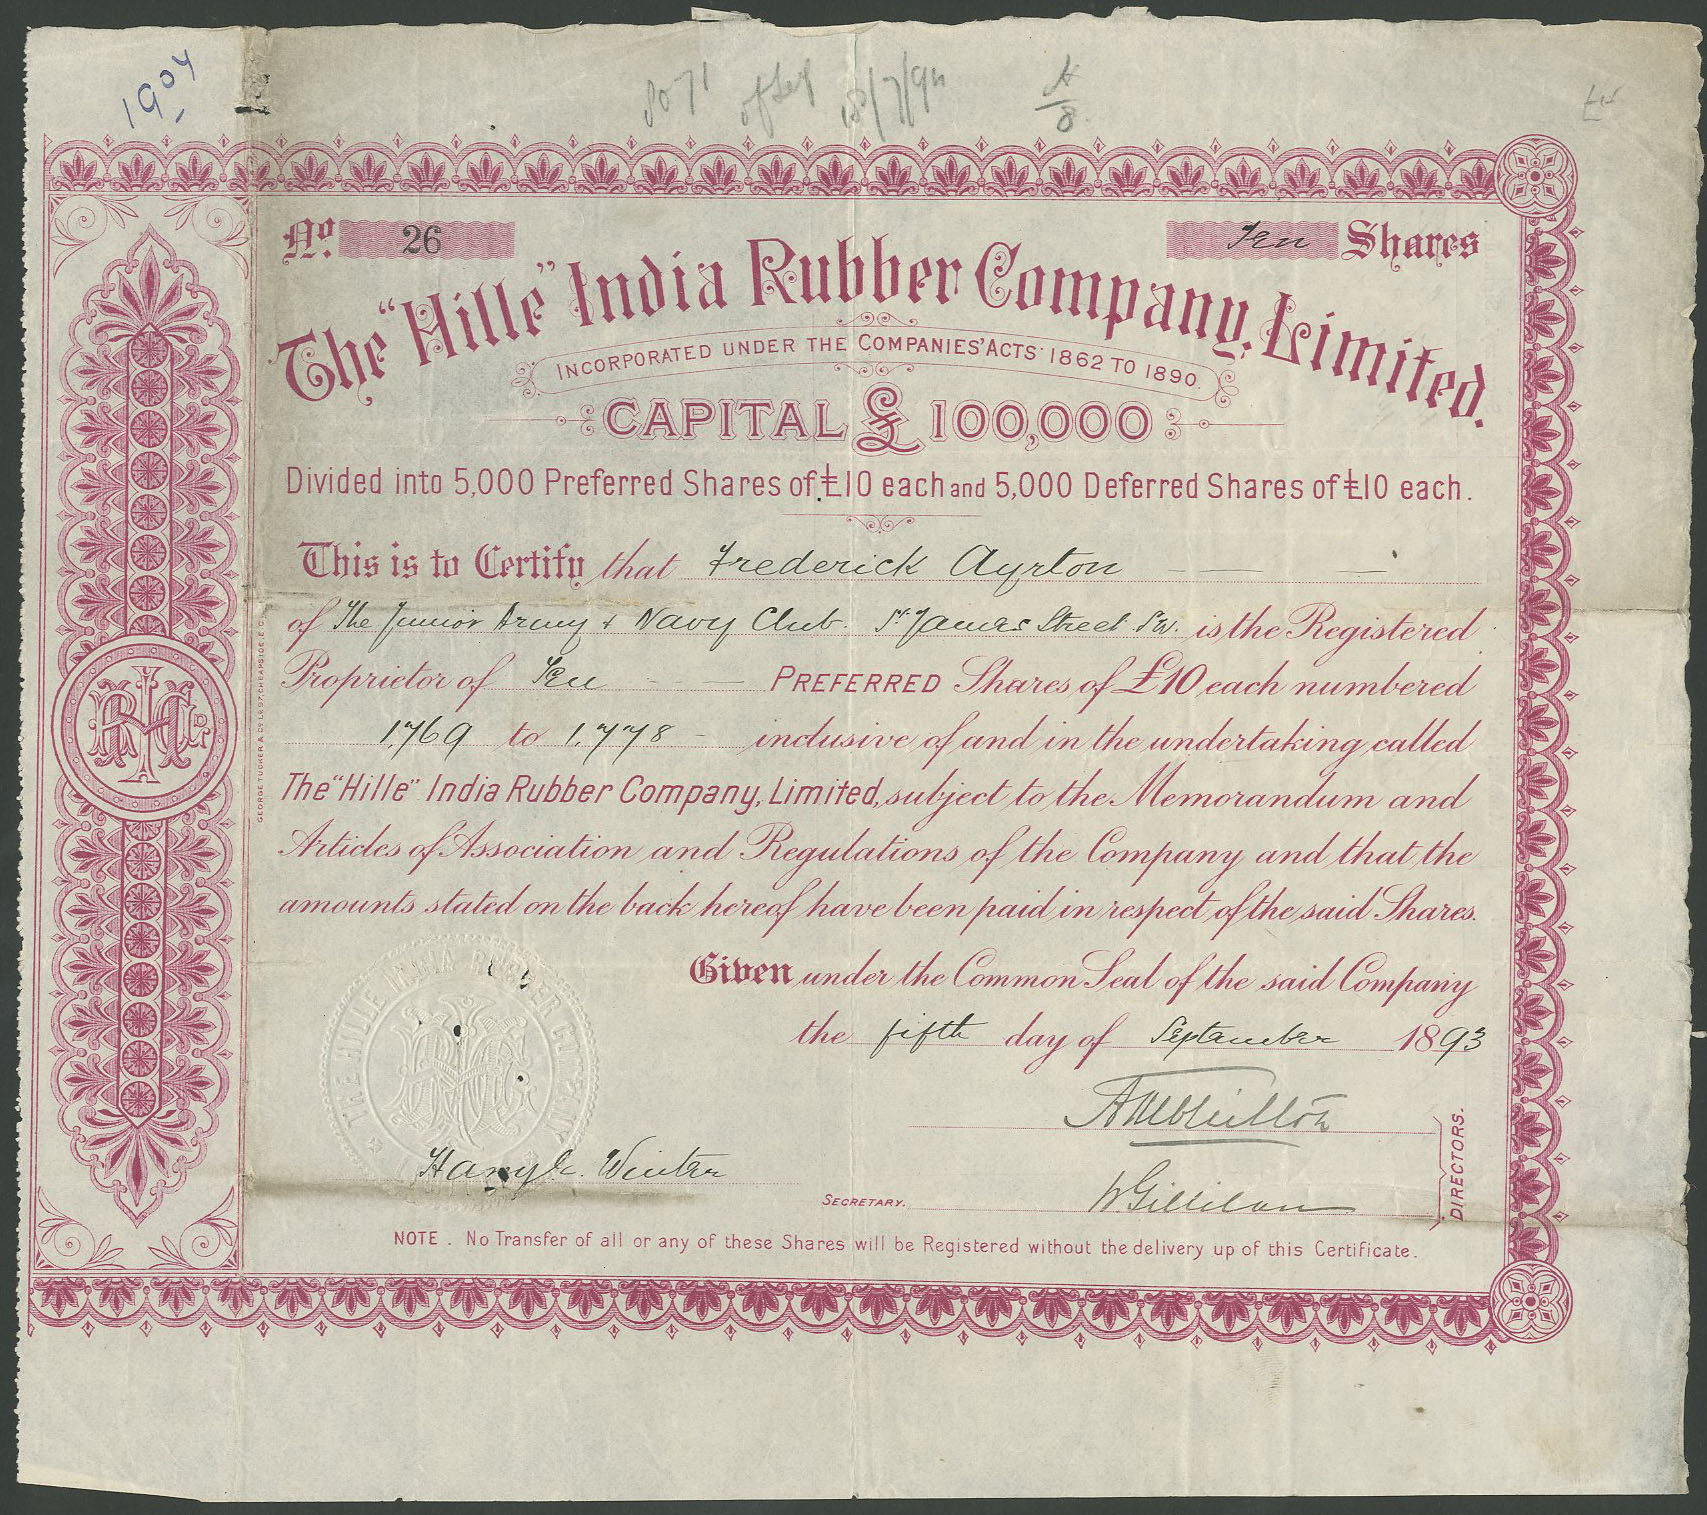 1904
8071 18/7/94 A/8 £15
No. 26 Ten Shares
The "Hille" India Rubber Company, Limited.
INCORPORATED UNDER THE COMPANIES' ACTS 1862 TO 1890.
CAPITAL £100,000
Divided into 5,000 Preferred Shares of £10 each and 5,000 Deferred Shares of £10 each.
This is to Certify that Frederick Ayrton
of The Junior Army & Navy Club. St. James Street S.W. is the Registered
Proprietor of Ten PREFERRED Shares of £10 each numbered
1,769 to 1,778 inclusive of and in the undertaking called
The "Hille" India Rubber Company, Limited, subject to the Memorandum and
Articles of Association and Regulations of the Company and that the
amounts stated on the back hereof have been paid in respect of the said Shares.
Given under the Common Seal of the said Company
the fifth day of September 1893
THE HILLE INDIA RUBBER COMPANY
Harry C. Winter
SECRETARY.
W Gillilan
DIRECTORS.
NOTE. No Transfer of all or any of these Shares will be Registered without the delivery up of this Certificate.
GEORGE TUCKER & CO. LD. 97, CHEAPSIDE, E.C.